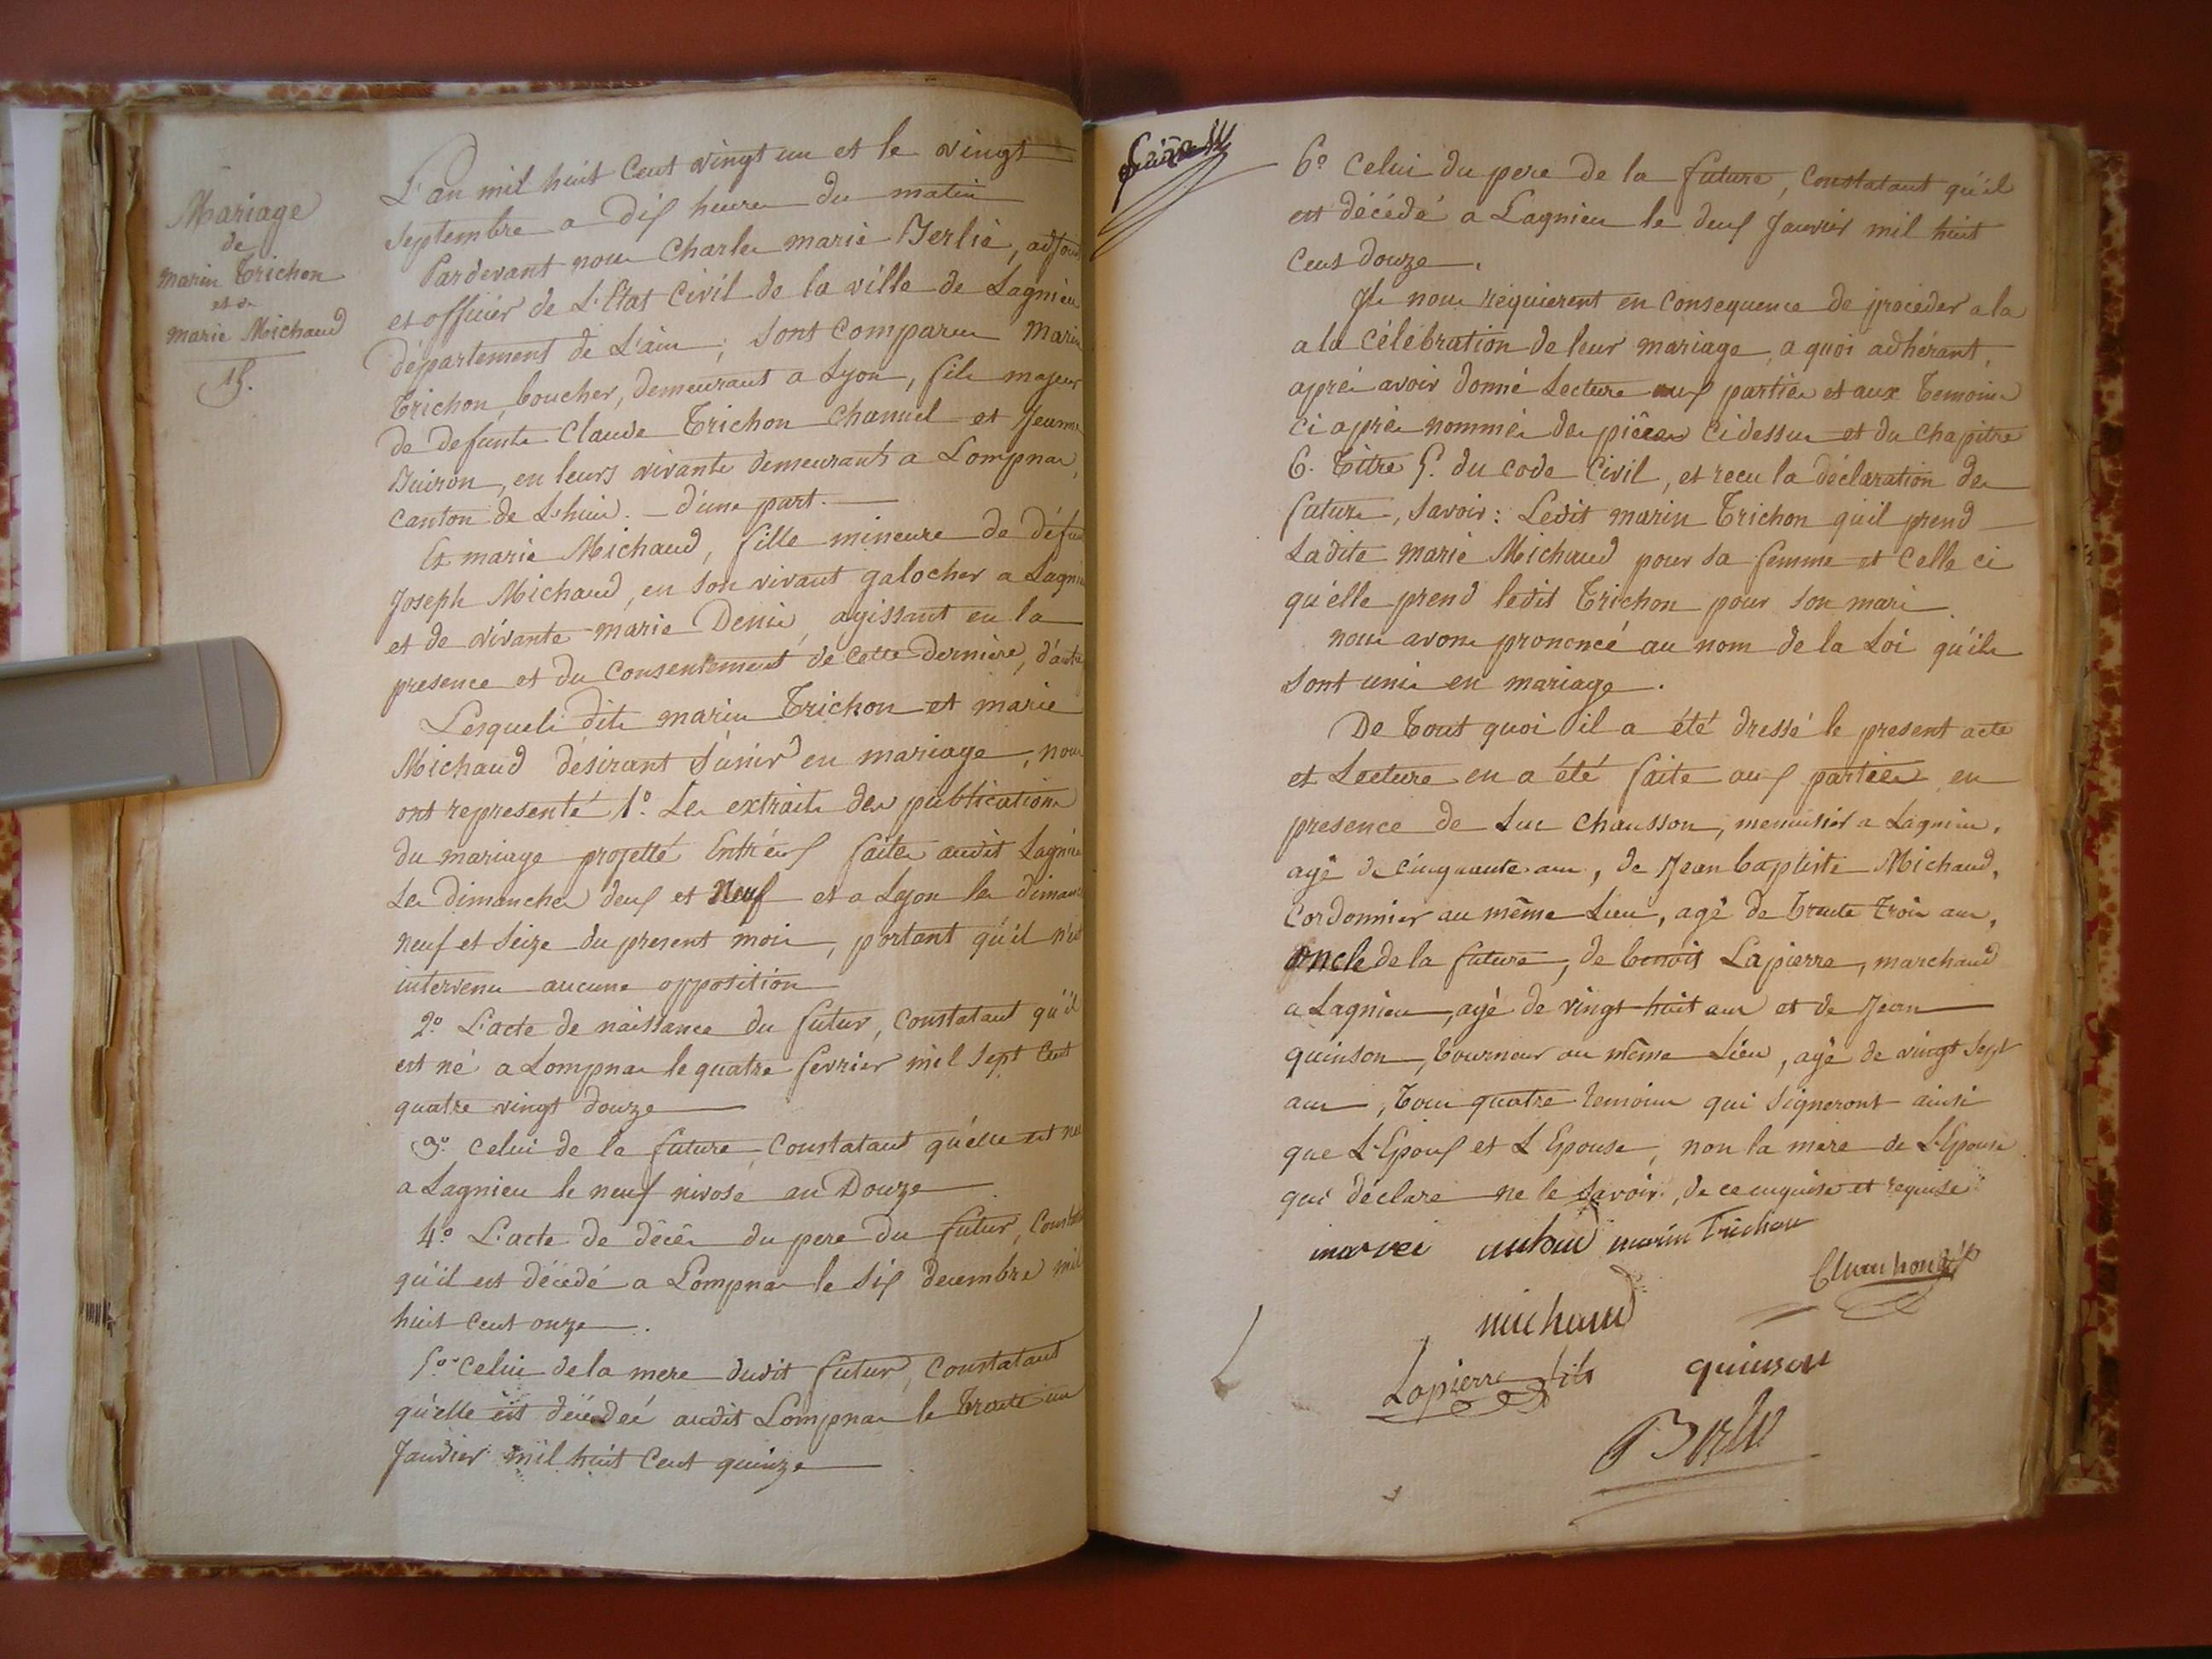 Mariage
de
marin Trichon
et de
marie Michaud
15.
L'an mil huit Cent vingt un et le vingt
septembre a dix heures du matin
Pardevant nous Charles marie Berlié, adjoint
et officiér de L'Etat Civil de la ville de Lagnieu
département de L'ain; sont Comparus Marin
Trichon, boucher, demeurant a Lyon, fils majeur
de defunts Claude Trichon Chanuel et Jeanne
Buiron, en leurs vivants demeurants a Lompnas,
canton de L'huis. d'une part.
Et marie Michaud, fille mineure de défunt
Joseph Michaud, en son vivant galocher a Lagnieu
et de vivante marie Denis, agissant en la
presence et du Consentement de cette derniere, d'autre
Lesquels dits marin Trichon et marie
Michaud désirant s'unir en mariage, nous
ont representé 1º. Les extraits des publications
du mariage projetté Entr'eux faites audit Lagnieu
Les dimanches deux et Neuf et a Lyon les dimanches
neuf et Seize du present mois, portant qu'il n'est
intervenu aucune opposition
2º. L'acte de naissance du futur, Constatant qu'il
est né a Lompnas le quatre fevrier mil sept Cent
quatre vingt douze
3º. celui de la future, Constatant qu'elle est née
a Lagnieu le neuf nivose an Douze
4º. L'acte de décès du pere du futur, Constatant
qu'il est décédé a Lompnas le six decembre mil
huit cent onze.
5º. celui de la mere dudit futur, Constatant
qu'elle est décedeé audit Lompnas le trente un
Janvier mil huit Cent quinze
6º. Celui du pere de la future, Constatant qu'il
est décédé a Lagnieu le deux Janvier mil huit
Cent douze.
Ils nous requierent en Consequence de proceder a la
a la Célébration de leur mariage, a quoi adhérant,
aprés avoir donné Lecture aux parties et aux temoins
ci aprés nommés des piéces cidessus et du Chapitre
6. titre 5. du code Civil, et recu la déclaration des
futurs, Savoir: Ledit marin Trichon qu'il prend
Ladite marie Michaud pour sa femme et Celle ci
qu'elle prend ledit Trichon pour son mari
nous avons prononcé au nom de la Loi qu'ils
Sont unis en mariage.
De tout quoi il a été dressé le present acte
et Lecture en a été faite aux parties en
presence de Luc Chausson, menuisier a Lagnieu,
agé de cinquante ans, de Jean baptiste Michaud,
Cordonnier au même Lieu, agé de trente trois ans,
oncle de la future, de benoit Lapierre, marchand
a Lagnieu, agé de vingt huit ans et de Jean
quinson, tourneur au même Lieu, agé de vingt sept
ans, tous quatre temoins qui Signeront ainsi
que L'Epoux et L'Epouse, non la mere de L'Epouse
qui declare ne le savoir, de ce enquise et requise
marie michaud marin Trichon
michaud
Lapierre fils quinson